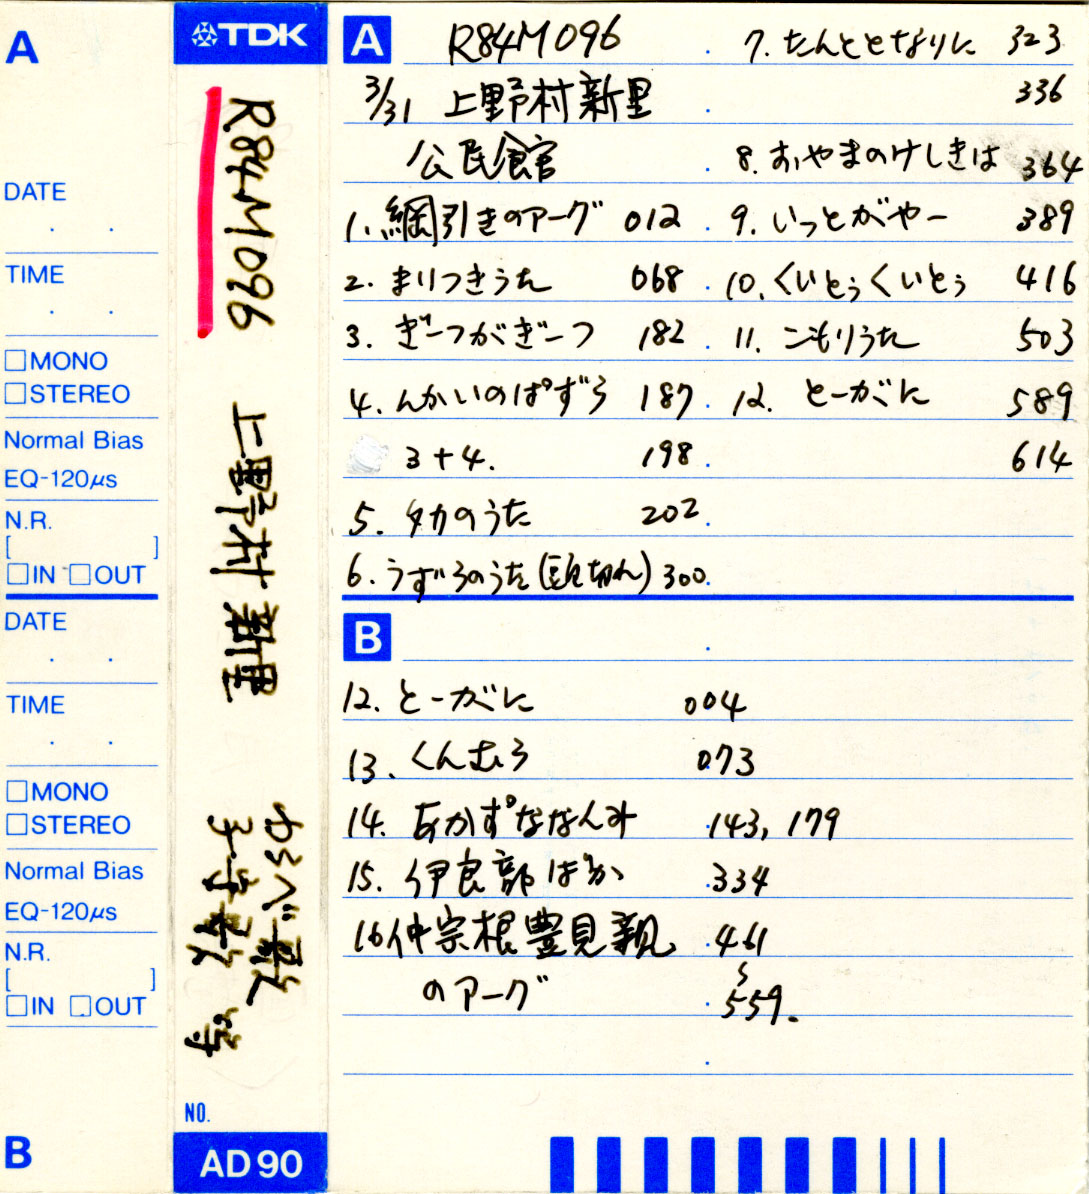 A
DATE
TIME
□MONO
□STEREO
Normal Bias
EQ-120μs
N.R.
[ ]
□IN □OUT
DATE
TIME
□MONO
□STEREO
Normal Bias
EQ-120μs
N.R.
[ ]
□IN □OUT
B
TDK
R84M096 上野村新里
わらべ歌
子守歌 等
NO.
AD90
A
R84M096
3/31 上野村新里
公民館
1. 綱引きのアーグ 012
2. まりつきうた 068
3. ぎーつがぎーつ 182
4. んかいのぱずろ 187
3+4. 198
5. タカのうた 202
6. うずろのうた (頭切れ) 300
7. たんととなりに 323
336
8. おやまのけしきは 364
9. いっとがやー 389
10. くいとぅくいとぅ 416
11. こもりうた 503
12. とーがに 589
614
B
12. とーがに 004
13. くんむろ 073
14. あかずななんみ 143, 179
15. 伊良部 334
16 仲宗根豊見親 461
のアーグ 〜559.